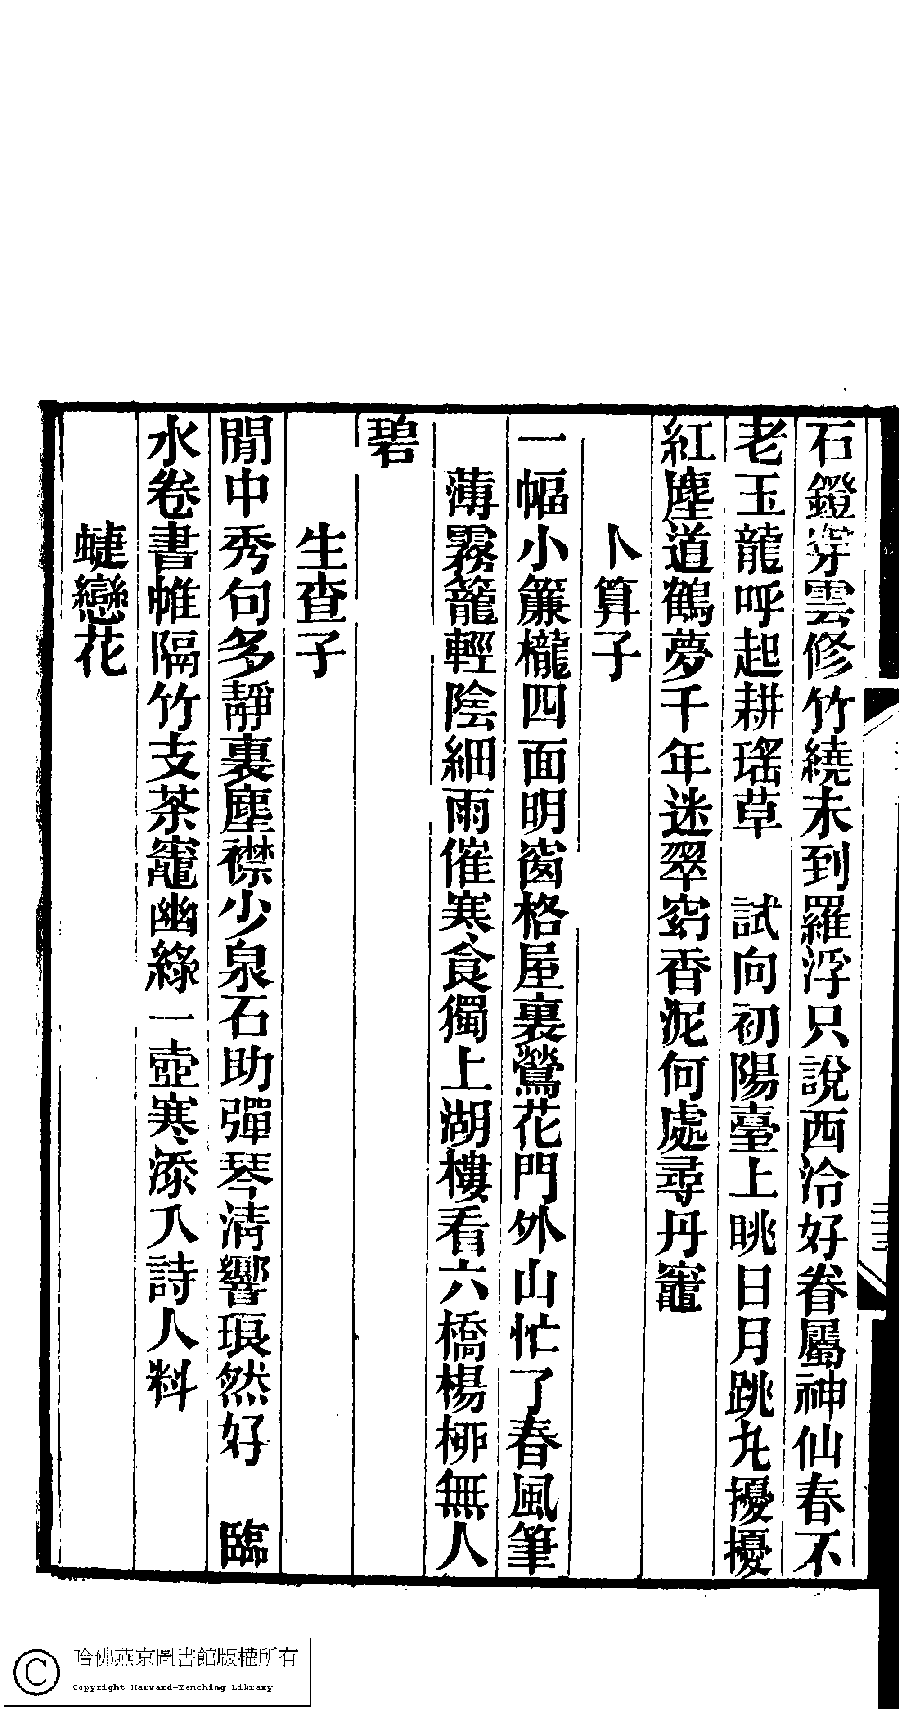 石鐙穿雲修竹繞未到羅浮只說西泠好眷屬神仙春不
老玉龍呼起耕瑤草　試向初陽臺上眺日月跳丸擾擾
紅塵道鶴夢千年迷翠窈香泥何處尋丹竈
卜算子
一幅小簾櫳四面明窗格屋裏鶯花門外山忙了春風筆
薄霧籠輕陰細雨催寒食獨上湖樓看六橋楊柳無人
碧
生查子
閒中秀句多靜裏塵襟少泉石助彈琴清響琅然好　臨
水卷書帷隔竹支茶竈幽綠一壺寒添入詩人料
蜨戀花
三三
哈佛燕京圖書館版權所有
Copyright Harvard-Yenching Library